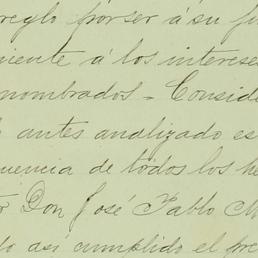 reglo por ser á su fa
niente á los interese
nombrados - Conside
antes analizado es
uencia de todos los he
Don José Pablo M
lo así cumplido el pre